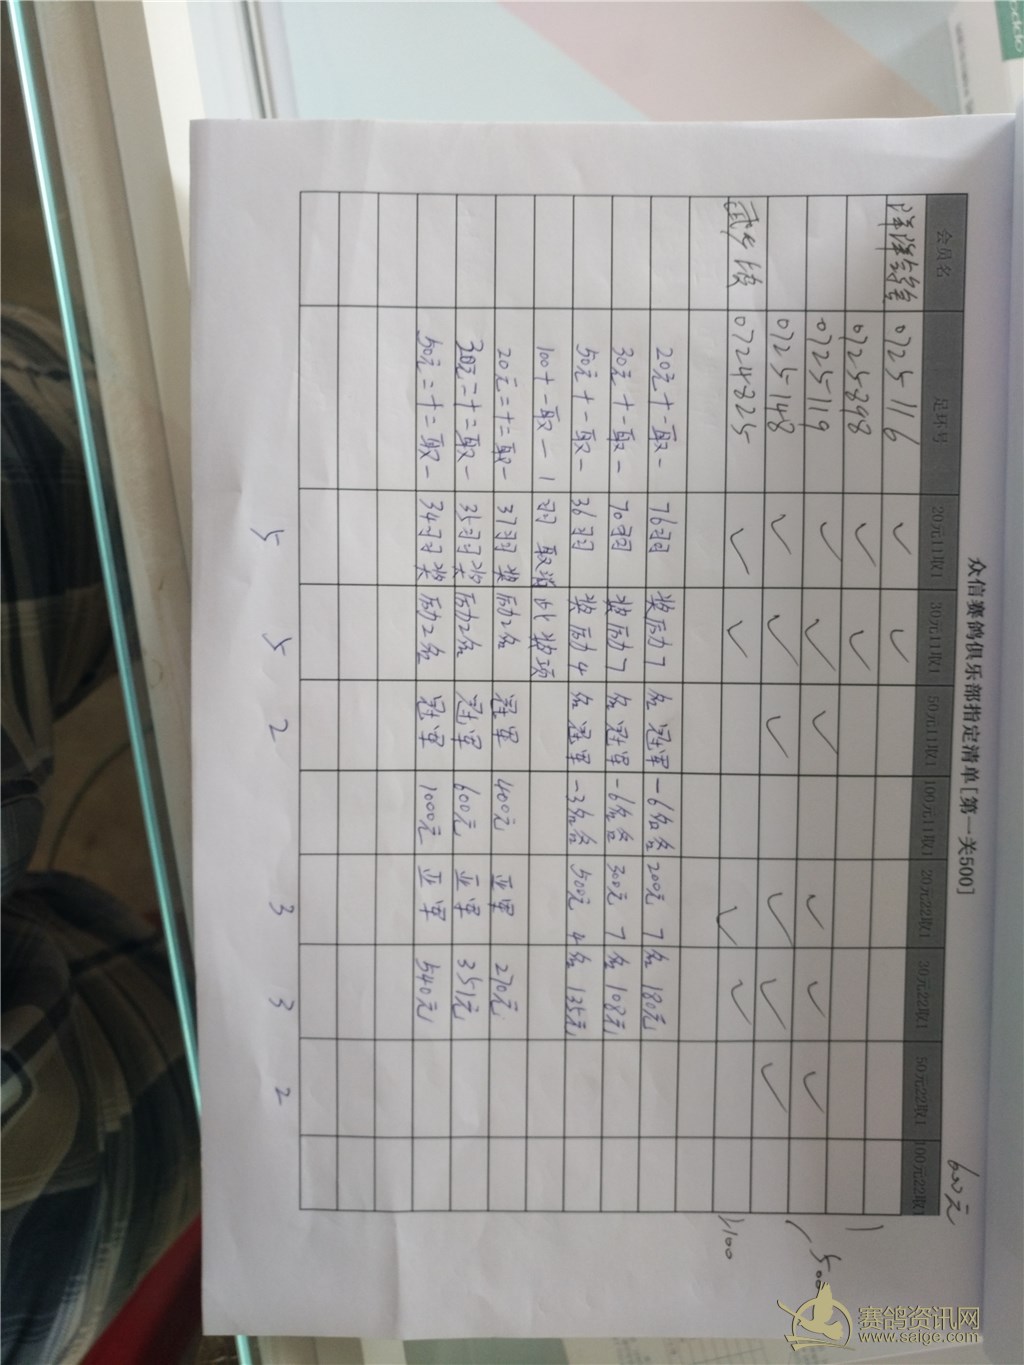 众信赛鸽俱乐部指定清单[第一关500]
600元
会员名 足环号 20元11取1 30元11取1 50元11取1 100元11取1 20元22取1 30元22取1 50元22取1 100元22取1
0725116 ✓ ✓
0725898 ✓ ✓
0725119 ✓ ✓ ✓ ✓ ✓ ✓
0725148 ✓ ✓ ✓ ✓ ✓ ✓
0724825 ✓ ✓ ✓ ✓
500
100
20元十一取一 76羽 奖励7名 冠军-6名各200元 7名180元
30元十一取一 70羽 奖励7名 冠军-6名各300元 7名108元
50元十一取一 36羽 奖励4名 冠军-3名各500元 4名135元
100十一取一 1羽 取消此奖项
20元二十二取一 37羽 奖励2名 冠军400元 亚军270元
30元二十二取一 35羽 奖励2名 冠军600元 亚军351元
50元二十二取一 34羽 奖励2名 冠军1000元 亚军540元
5 5 2 3 3 2
赛鸽资讯网
www.saige.com